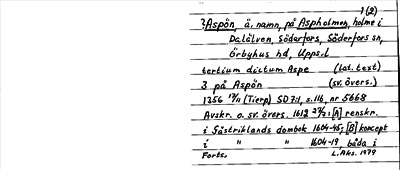 1(2)
?Aspön, ä. namn, på Aspholmen, holme i
Dalälven, Söderfors, Söderfors sn,
Örbyhus hd, Upps.l
tertium dictum Aspe (lat. text)
3 på Aspön (sv. övers.)
1356 13/11 (Tierp) SD 7:1, s.116, nr 5668
Avskr. o. sv. övers. 1612 27/2: [A] renskr.
i Gästriklands dombok 1604-45; [B] koncept
i " " 1604-19 båda i
Forts. L.Aks. 1979